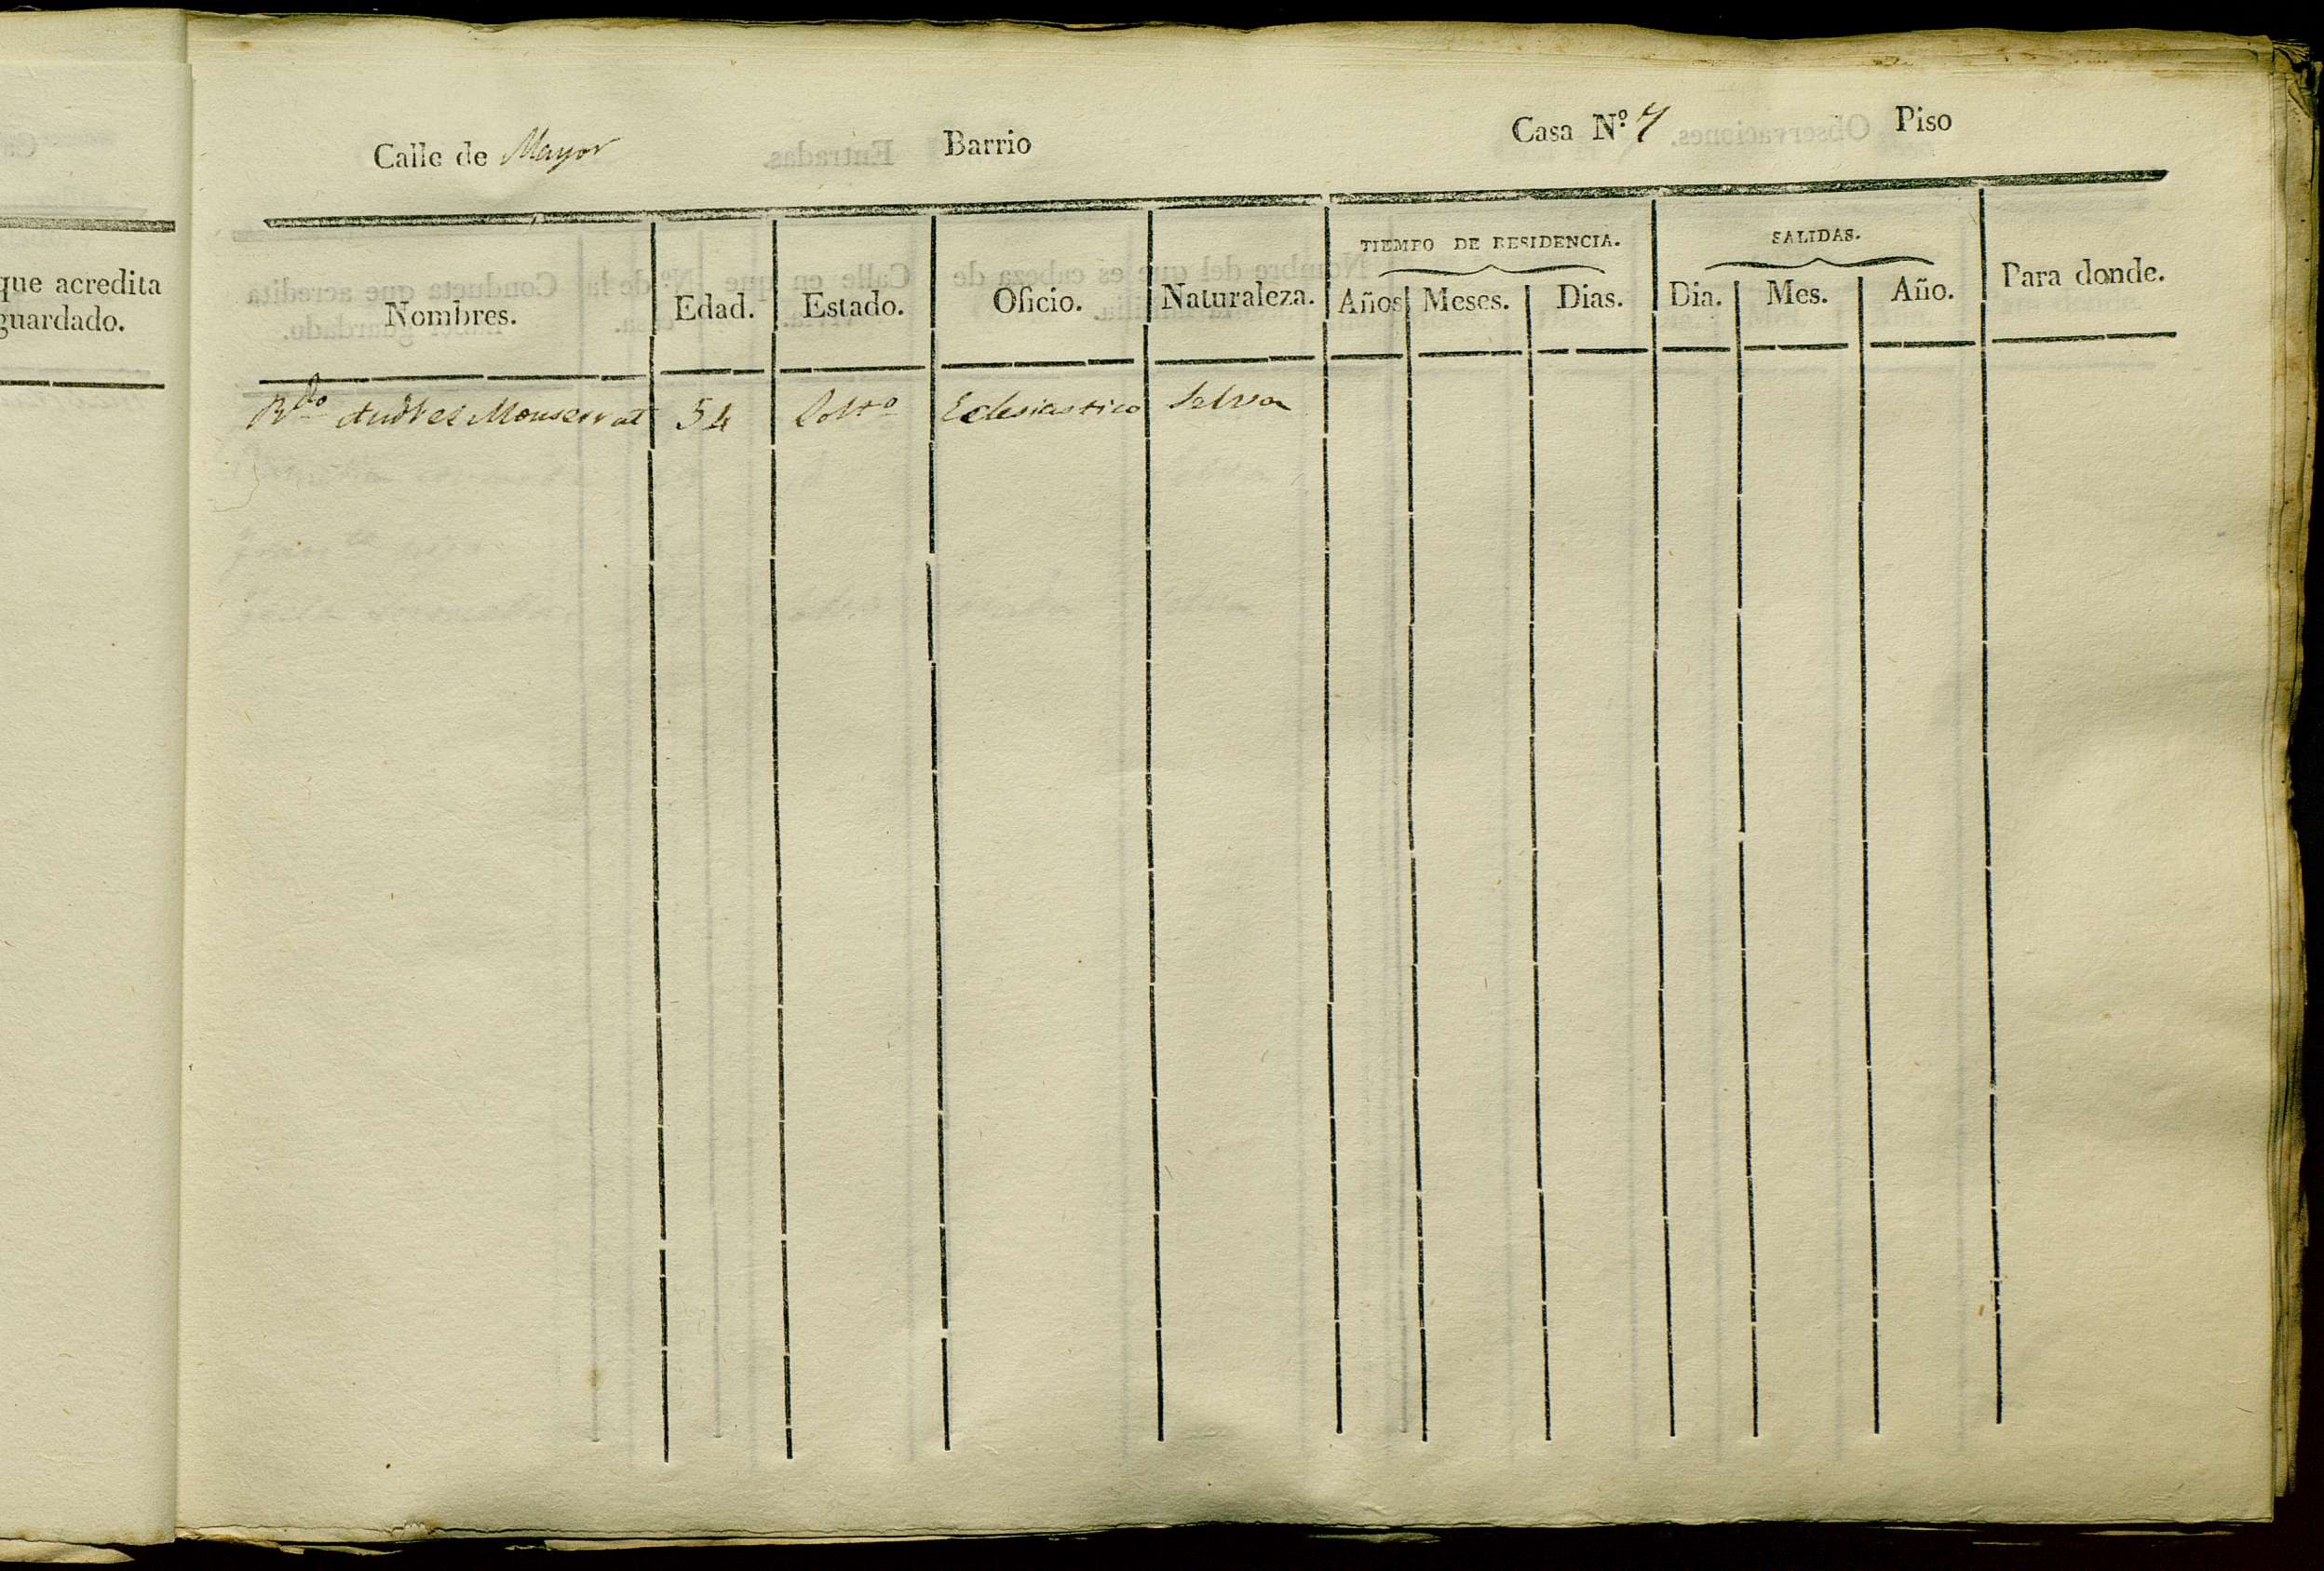 que acredita
guardado.
Calle de Mayor Barrio Casa Nº 7 Piso
TIEMPO DE RESIDENCIA. SALIDAS.
Nombres. Edad. Estado. Oficio. Naturaleza. Años Meses. Dias. Dia. Mes. Año. Para donde.
Rdo Andres Monserrat 54 Soltº Eclesiastico Selva